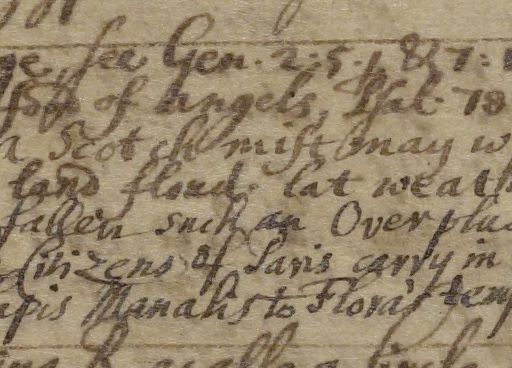 see Gen. 2: 5. & 7:
food of angels, Psal. 78
a Scotch mist may w
land flood. lat weath
fallen such an Overplus
Citizens of Paris carry in
apis Manalis to Flora's temp